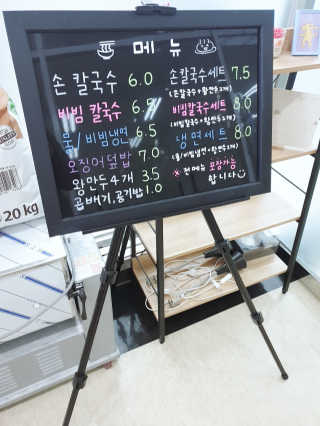 메뉴
손칼국수 6.0
비빔칼국수 6.5
물/비빔냉면 6.5
오징어덮밥 7.0
왕만두4개 3.5
곱배기,공기밥 1.0
손칼국수세트 7.5
(손칼국수+왕만두2개)
비빔칼국수세트 8.0
(비빔칼국수+왕만두2개)
냉면세트 8.0
(물/비빔냉면+왕만두2개)
* 전메뉴 포장가능
합니다
20 kg